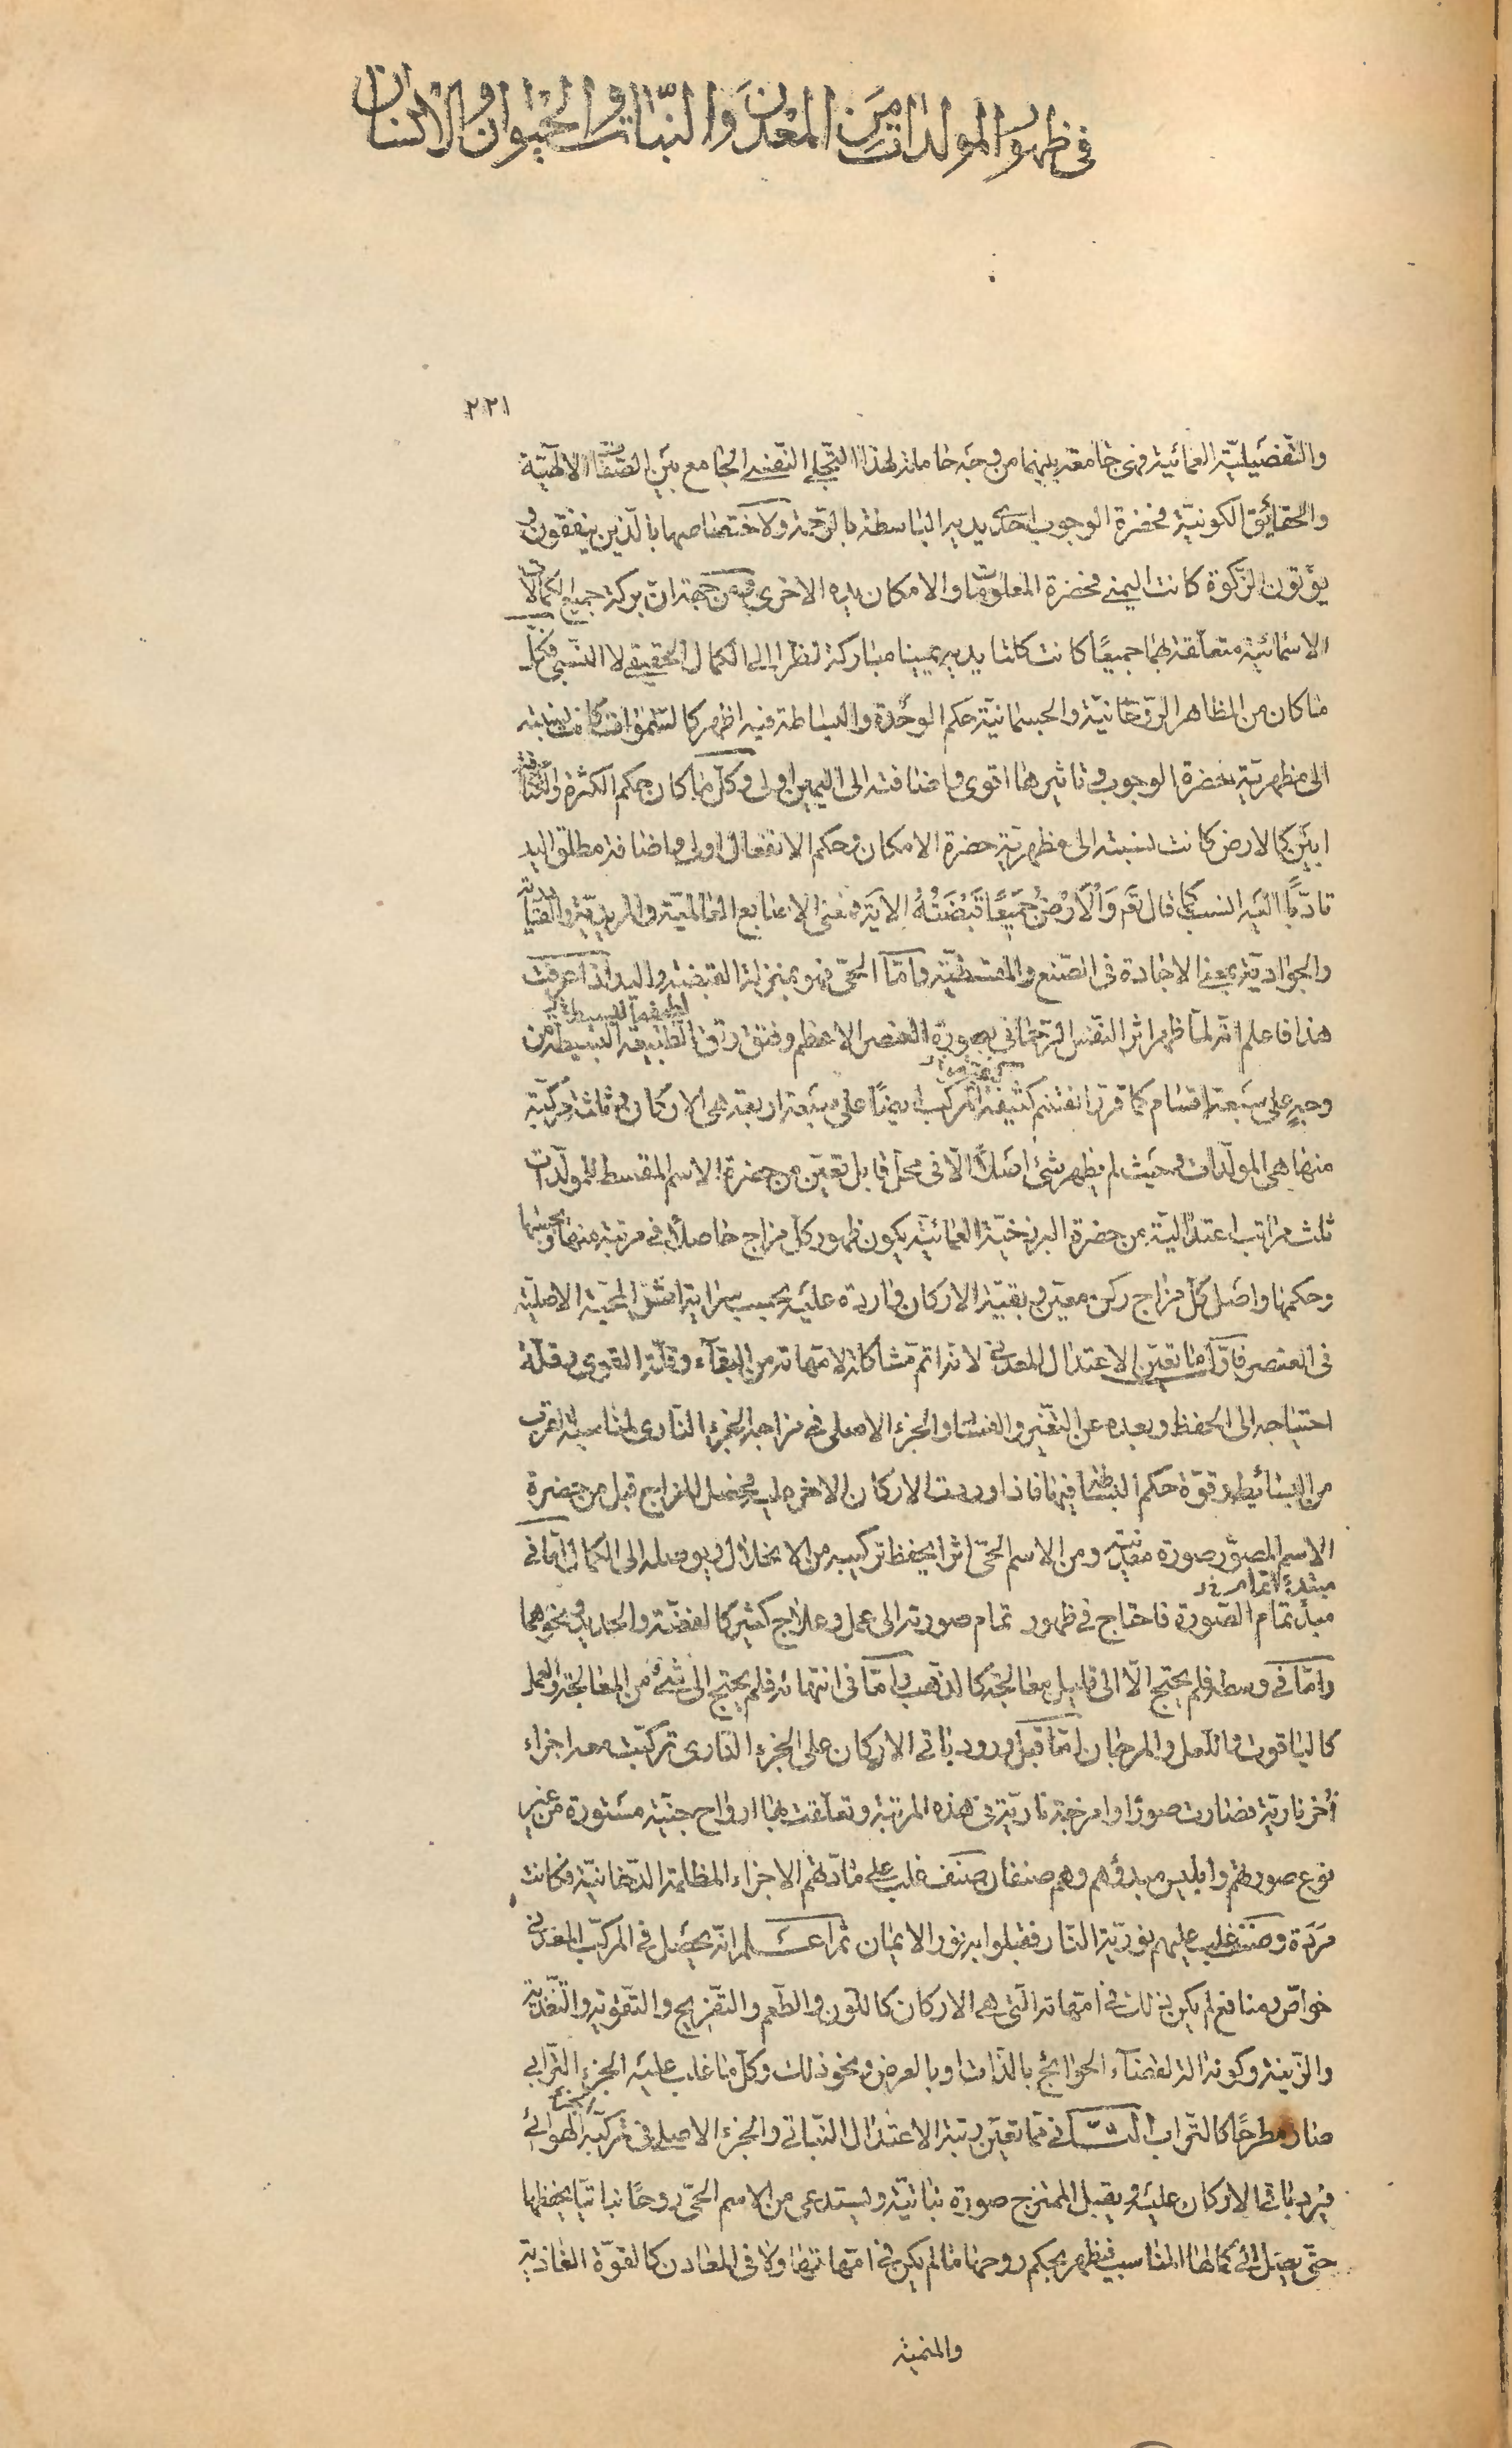 فى ظهور المولدات من المعدن والنبات والحيوان والانسان
٢٢١
والتفصيليّة العمائية فهى جامعة بينهما من وجه حاملة لهذا التجلى النفسى الجامع بين الصفات الالهيّة
والحقائق الكونيّة فحضرة الوجوب احدى يديه الباسطة بالرحمة ولاختصاصها بالذين ينفقون و
يؤتون الزكوة كانت اليمنى فحضرة المعلومات والامكان يده الاخرى ومن جهة انّ بركة جميع الكمالات
الاسمائية متعلقة بهما جميعًا كانت كلتا يديه يمينا مباركة نظرا الى الكمال الحقيقى لا النسبى فكلّ
ما كان من المظاهر الروحانيّة والجسمانيّة حكم الوحدة والبساطة فيه اظهر كالسّموات كانت نسبته
الى مظهريّة حضرة الوجوب وتاثيرها اقوى واضافته الى اليمين اولى وكل ما كان حكم الكثرة والكثافة
ابين كالارض كانت نسبته الى مظهريّة حضرة الامكان وحكم الانفعال اولى واضافة مطلق اليد
تادّبًا اليه انسب كما قال تع وَالْاَرْضُ جَميعًا قَبْضَتُهُ الاية فمعنى الاصابع العالميّة والمريديّة والقيّاميّة
والجواديّة بمعنى الاجادة فى الصّنع والمقسطيّة وامّا الحىّ فهو بمنزلة القبضة واليد اذا عرفت
هذا فاعلم انّه لمّا ظهر اثر النفس الرحمانى بصورة العنصر الاعظم وفتق رتق الطبيعة البسيطة من
وجهٍ على سبعة اقسام كما قرّر انقسم كثيفه المركب ايضًا على سبعة اربعة هى الاركان وثلثة مركّبة
منها هى المولّدات وحيث لم يظهر شئ اصلًا الّا فى محلّ قابل تعيّن من حضرة الاسم المقسط للمولّدات
ثلث مراتب اعتداليّة من حضرة البرزخيّة العمائيّة يكون ظهور كلّ مزاج حاصلًا فى مرتبة منها وبحسبها
وحكمها واصل كلّ مزاج ركن معيّن وبقيّة الاركان واردة عليه بحسب سراية المحبّة الاصليّة
فى العنصر فاوّل ما تعيّن الاعتدال المعدنى لانّه اتم مشاكلة لامّهاته من البقآء وقلّة القوى وقلّة
احتياجه الى الحفظ وبعده عن التغيّر والفساد والجزء الاصلى فى مزاجه الجزء النارى لمناسبة اقرب
من البسائط وقوّة حكم البساطة فيها فاذا وردت الاركان الاخر عليه فحصل المزاج قبل من حضرة
الاسم المصوّر صورة معدنيّة ومن الاسم الحىّ اثرا يحفظ تركيبه من الانحلال ويوصله الى الكمال امّا فى
مبدء تمام الصّورة فاحتاج فى ظهور تمام صورته الى عمل وعلاج كثير كالفضّة والحديد ونحوهما
وامّا فى وسطه فلم يحتج الّا الى قليل معالجة كالذهب وامّا فى انتهائه فلم يحتج الى شئ من المعالجة والعمل
كالياقوت واللعل والمرجان امّا قبل ورود باقى الاركان على الجزء النارى تركّبت معه اجزاء
اُخر ناريّة فصارت صورًا وامزجة ناريّة فى هذه المرتبة وتعلّقت بها ارواح جنيّة مستورة من غير
نوع صورهم وابليس مبدؤهم وهم صنفان صنف غلب على مادّتهم الاجزاء المظلمة الدّخانيّة فكانت
مردة وصنف غلب عليهم نوريّة النار فقبلوا به نور الايمان ثم اعلم انّه يحصل فى المركّب المعدنى
خواصّ ومنافع لم يكن ذلك فى امّهاته الّتى هى الاركان كاللون والطّعم والتفريح والتقوية والتغذية
والزّينة وكونه الة لقضآء الحوائج بالذّات او بالعرض ونحو ذلك وكلّ ما غلب عليه الجزء الترابى
صار مطرحًا كالتراب الثانى فيما تعيّن رتبة الاعتدال النباتى والجزء الاصلى فى تركّبه الهوائى
فيرد باقى الاركان عليه ويقبل الممتزج صورة نباتيّة ويستدعى من الاسم الحىّ روحًا نباتيّا يحفظها
حتّى يصل الى كمالها المناسب فيظهر بحكم روحها ما لم يكن فى امّهاتها ولا فى المعادن كالقوّة الغاذية
والمنمية